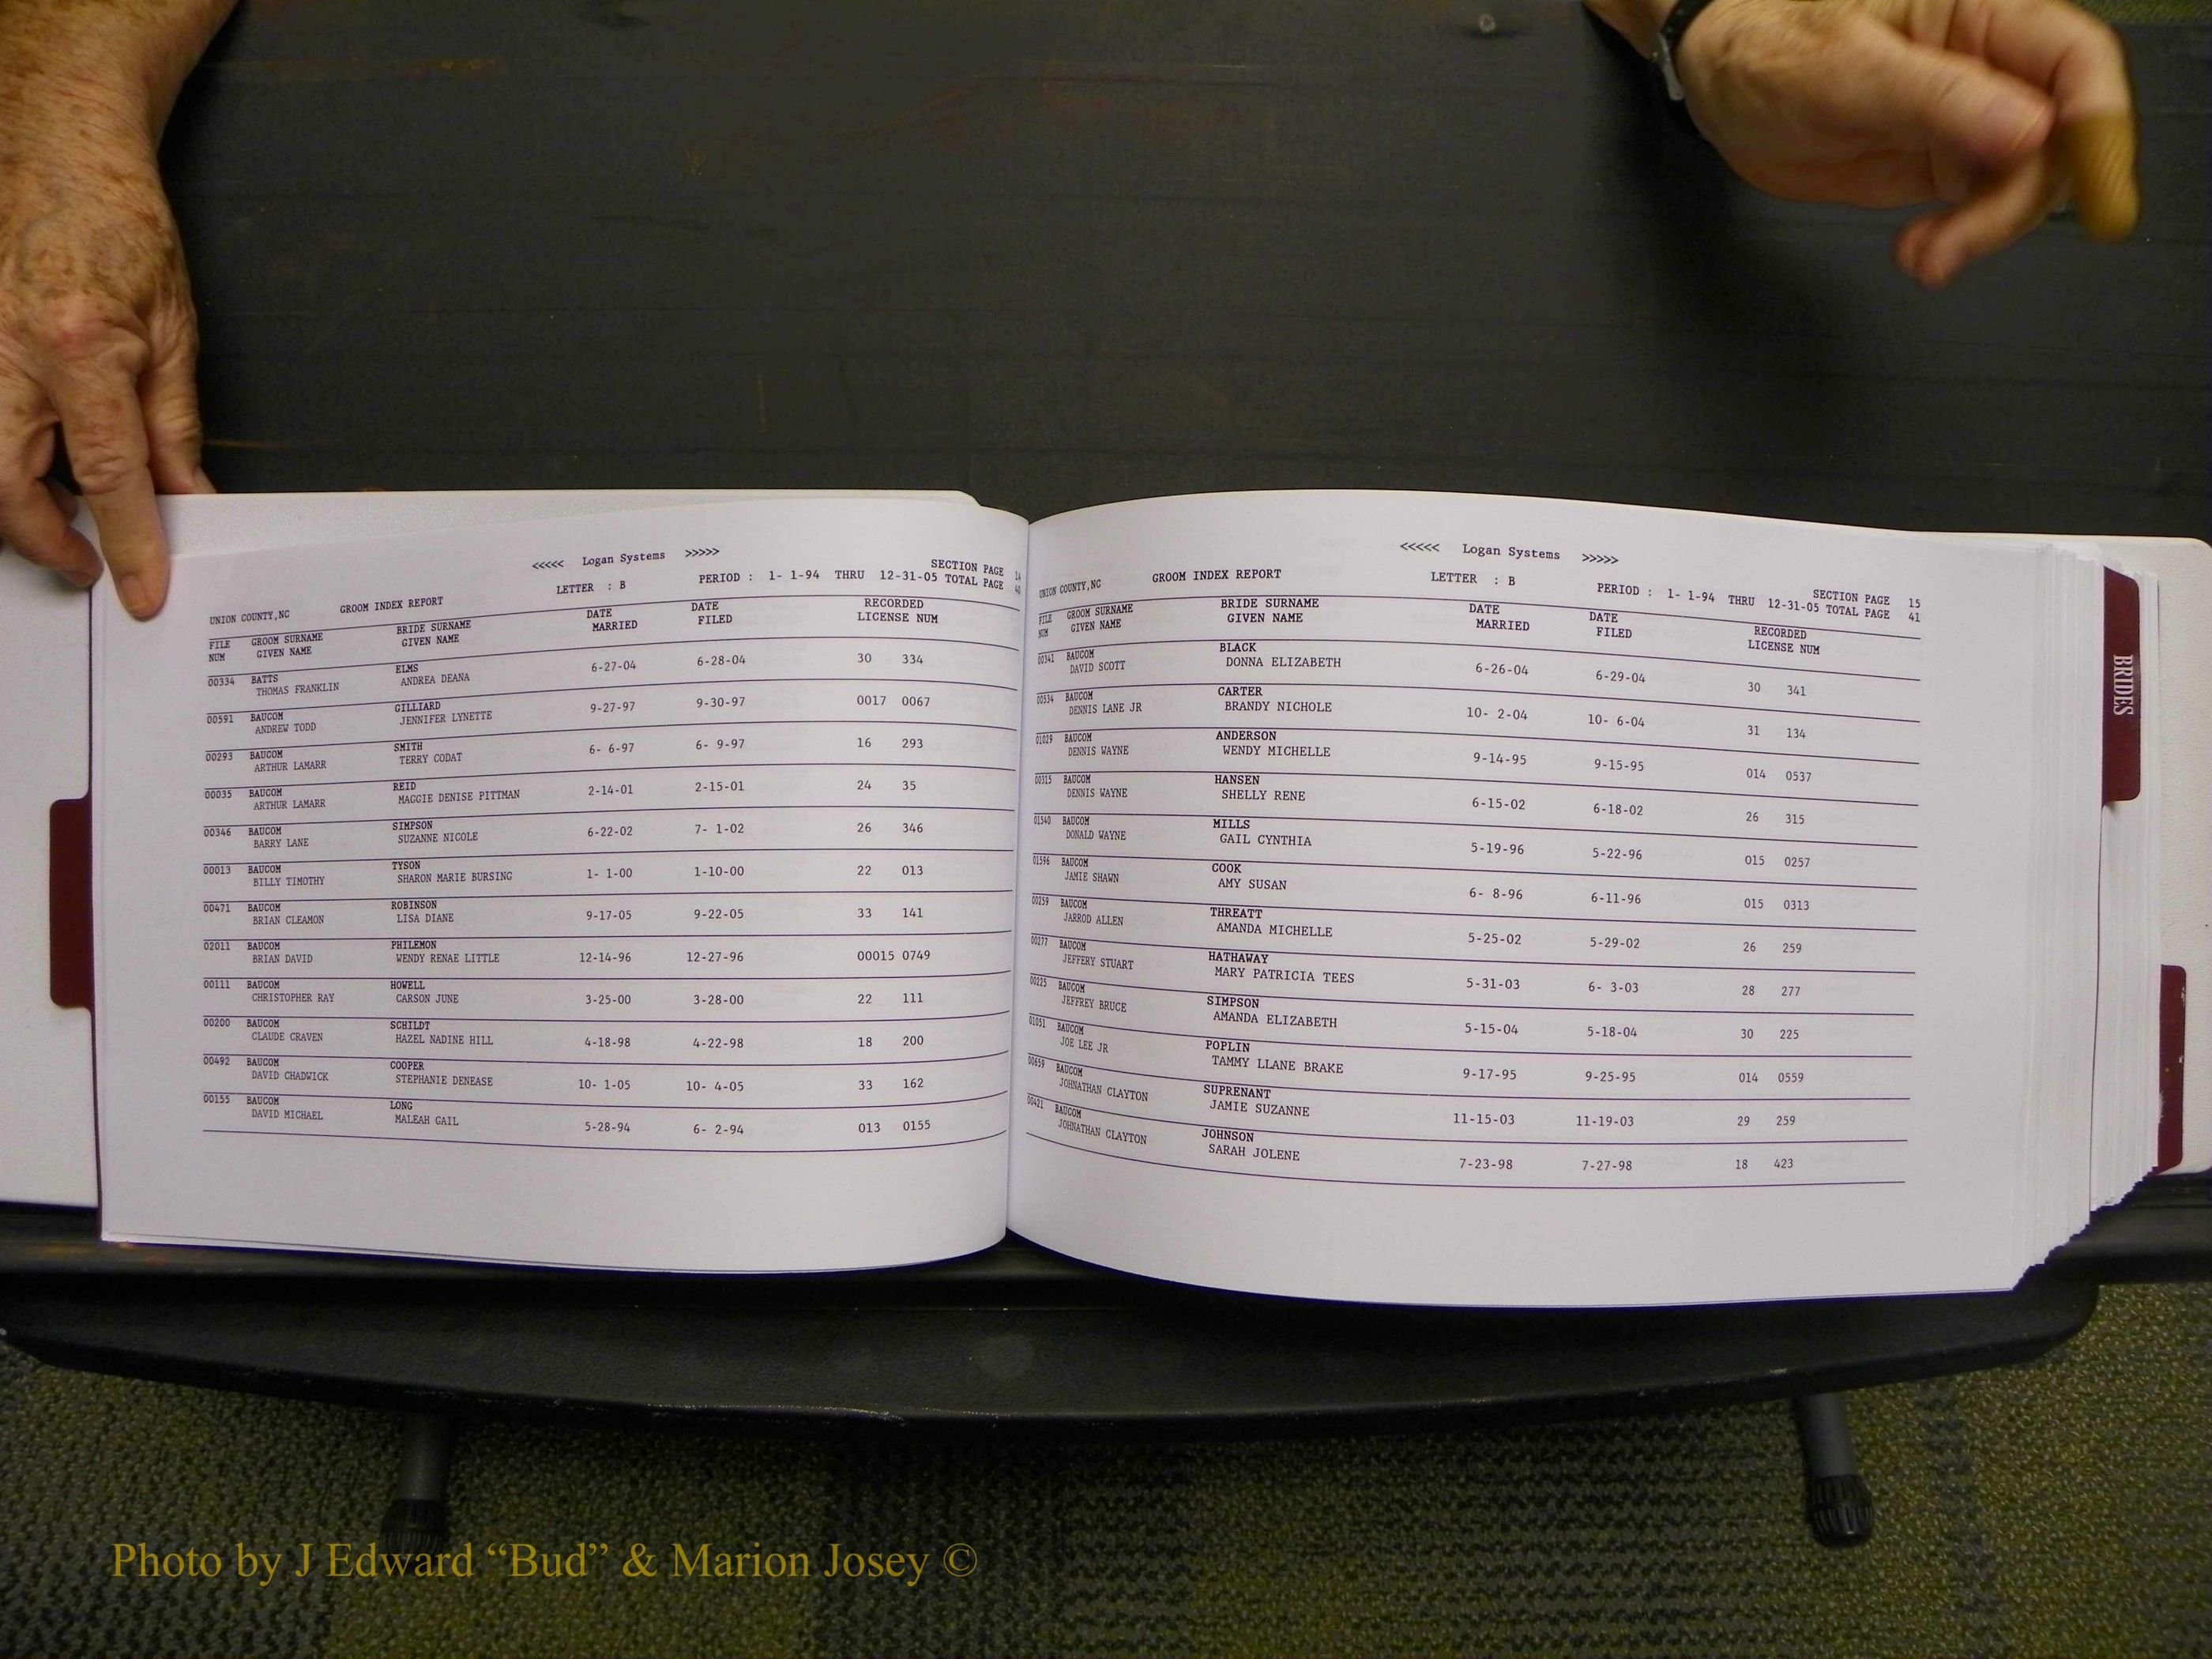 <<<<< Logan Systems >>>>>
SECTION PAGE 14
UNION COUNTY,NC GROOM INDEX REPORT LETTER : B PERIOD : 1- 1-94 THRU 12-31-05 TOTAL PAGE 40
FILE GROOM SURNAME BRIDE SURNAME DATE DATE RECORDED
NUM GIVEN NAME GIVEN NAME MARRIED FILED LICENSE NUM
00334 BATTS ELMS 6-27-04 6-28-04 30 334
THOMAS FRANKLIN ANDREA DEANA
00591 BAUCOM GILLIARD 9-27-97 9-30-97 0017 0067
ANDREW TODD JENNIFER LYNETTE
00293 BAUCOM SMITH 6- 6-97 6- 9-97 16 293
ARTHUR LAMARR TERRY CODAT
00035 BAUCOM REID 2-14-01 2-15-01 24 35
ARTHUR LAMARR MAGGIE DENISE PITTMAN
00346 BAUCOM SIMPSON 6-22-02 7- 1-02 26 346
BARRY LANE SUZANNE NICOLE
00013 BAUCOM TYSON 1- 1-00 1-10-00 22 013
BILLY TIMOTHY SHARON MARIE BURSING
00471 BAUCOM ROBINSON 9-17-05 9-22-05 33 141
BRIAN CLEAMON LISA DIANE
02011 BAUCOM PHILEMON 12-14-96 12-27-96 00015 0749
BRIAN DAVID WENDY RENAE LITTLE
00111 BAUCOM HOWELL 3-25-00 3-28-00 22 111
CHRISTOPHER RAY CARSON JUNE
00200 BAUCOM SCHILDT 4-18-98 4-22-98 18 200
CLAUDE CRAVEN HAZEL NADINE HILL
00492 BAUCOM COOPER 10- 1-05 10- 4-05 33 162
DAVID CHADWICK STEPHANIE DENEASE
00155 BAUCOM LONG 5-28-94 6- 2-94 013 0155
DAVID MICHAEL MALEAH GAIL
<<<<< Logan Systems >>>>>
SECTION PAGE 15
UNION COUNTY,NC GROOM INDEX REPORT LETTER : B PERIOD : 1- 1-94 THRU 12-31-05 TOTAL PAGE 41
FILE GROOM SURNAME BRIDE SURNAME DATE DATE RECORDED
NUM GIVEN NAME GIVEN NAME MARRIED FILED LICENSE NUM
00341 BAUCOM BLACK 6-26-04 6-29-04 30 341
DAVID SCOTT DONNA ELIZABETH
00534 BAUCOM CARTER 10- 2-04 10- 6-04 31 134
DENNIS LANE JR BRANDY NICHOLE
01029 BAUCOM ANDERSON 9-14-95 9-15-95 014 0537
DENNIS WAYNE WENDY MICHELLE
00315 BAUCOM HANSEN 6-15-02 6-18-02 26 315
DENNIS WAYNE SHELLY RENE
01540 BAUCOM MILLS 5-19-96 5-22-96 015 0257
DONALD WAYNE GAIL CYNTHIA
01596 BAUCOM COOK 6- 8-96 6-11-96 015 0313
JAMIE SHAWN AMY SUSAN
00259 BAUCOM THREATT 5-25-02 5-29-02 26 259
JARROD ALLEN AMANDA MICHELLE
00277 BAUCOM HATHAWAY 5-31-03 6- 3-03 28 277
JEFFERY STUART MARY PATRICIA TEES
00225 BAUCOM SIMPSON 5-15-04 5-18-04 30 225
JEFFREY BRUCE AMANDA ELIZABETH
01051 BAUCOM POPLIN 9-17-95 9-25-95 014 0559
JOE LEE JR TAMMY LLANE BRAKE
00659 BAUCOM SUPRENANT 11-15-03 11-19-03 29 259
JOHNATHAN CLAYTON JAMIE SUZANNE
00421 BAUCOM JOHNSON 7-23-98 7-27-98 18 423
JOHNATHAN CLAYTON SARAH JOLENE
BRIDES
Photo by J Edward “Bud” & Marion Josey ©